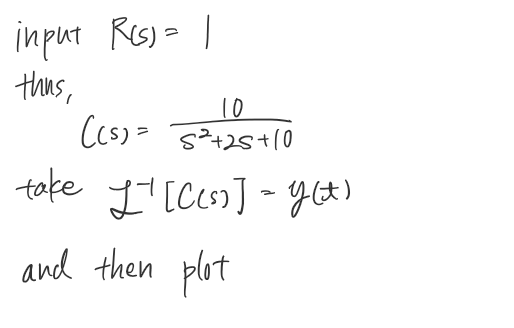 input R(s) = 1
thus,
C(s) = 10 / s²+2s+10
take ℒ⁻¹[C(s)] = y(t)
and then plot